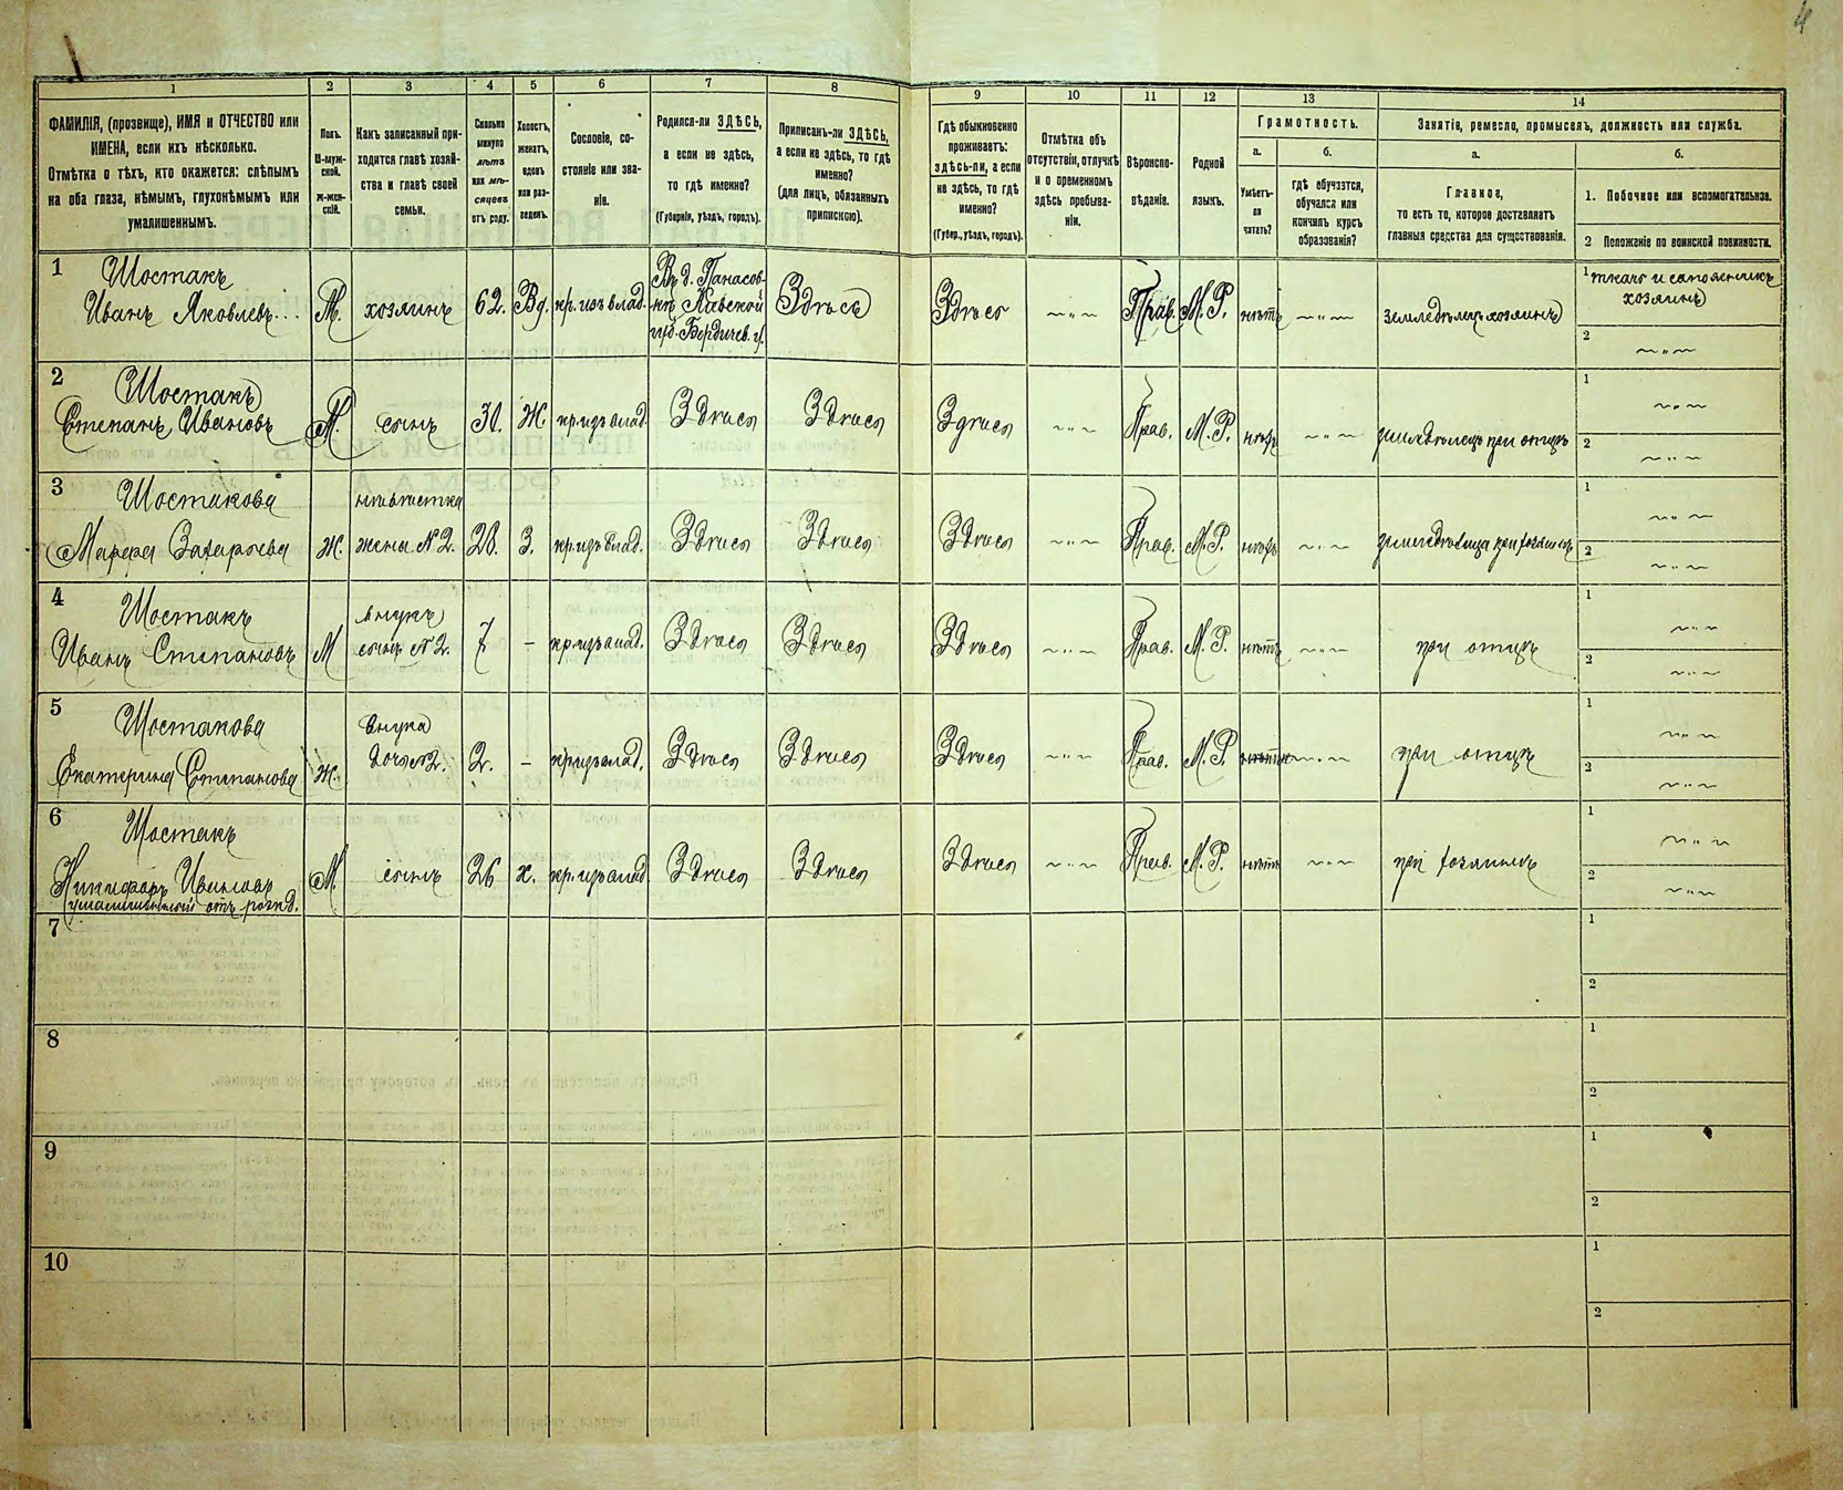 4
1 2 3 4 5 6 7 8 9 10 11 12 13 14
ФАМИЛІЯ, (прозвище), ИМЯ и ОТЧЕСТВО или
ИМЕНА, если ихъ нѣсколько.
Отмѣтка о тѣхъ, кто окажется: слѣпымъ
на оба глаза, нѣмымъ, глухонѣмымъ или
умалишеннымъ.
Полъ.
М-муж-
ской.
Ж-жен-
скій.
Какъ записанный при-
ходится главѣ хозяй-
ства и главѣ своей
семьи.
Сколько
минуло
лѣтъ
или мѣ-
сяцевъ
отъ роду.
Холостъ,
женатъ,
вдовъ
или раз-
веденъ.
Сословіе, со-
стояніе или зва-
ніе.
Родился-ли ЗДѢСЬ,
а если не здѣсь,
то гдѣ именно?
(Губернія, уѣздъ, городъ).
Приписанъ-ли ЗДѢСЬ,
а если не здѣсь, то гдѣ
именно?
(для лицъ, обязанныхъ
припискою).
Гдѣ обыкновенно
проживаетъ:
здѣсь-ли, а если
не здѣсь, то гдѣ
именно?
(Губер., уѣздъ, городъ).
Отмѣтка объ
отсутствіи, отлучкѣ
и о временномъ
здѣсь пребыва-
ніи.
Вѣроиспо-
вѣданіе.
Родной
языкъ.
Грамотность.
а.
Умѣетъ-
ли
читать?
б.
гдѣ обучается,
обучался или
кончилъ курсъ
образованія?
Занятіе, ремесло, промыселъ, должность или служба.
а.
Главное,
то есть то, которое доставляетъ
главныя средства для существованія.
б.
1. Побочное или вспомогательное.
2 Положеніе по воинской повинности.
1 Шостакъ
Иванъ Яковлевъ...
М.
хозяинъ
62.
Вд.
кр. изъ влад.
Въ д. Панасов-
Кіевской
губ. Бердичев. у.
Здѣсь
Здѣсь
~"~
Прав.
М. Р.
нѣтъ
~"~
земледѣлецъ хозяинъ
1 ткачъ и
хозяинъ
2 ~"~
2 Шостакъ
Степанъ Ивановъ
М.
сынъ
Ж.
кр. изъ влад.
Здѣсь
Здѣсь
Здѣсь
~"~
Прав.
М. Р.
нѣтъ
~"~
земледѣлецъ при отцѣ
1 ~"~
2 ~"~
3 Шостакова
Марфа Захарьева
Ж.
невѣстка
жена №2.
28.
З.
кр. изъ влад.
Здѣсь
Здѣсь
Здѣсь
~"~
Прав.
М. Р.
нѣтъ
~"~
при хозяинѣ
1 ~"~
2 ~"~
4 Шостакъ
Иванъ Степановъ
М
внукъ
сынъ №2.
7
-
кр. изъ влад.
Здѣсь
Здѣсь
Здѣсь
~"~
Прав.
М. Р.
нѣтъ
~"~
при отцѣ
1 ~"~
2 ~"~
5 Шостакова
Екатерина Степанова
Ж.
внука
дочь №2.
2.
-
кр. изъ влад.
Здѣсь
Здѣсь
Здѣсь
~"~
Прав.
М. Р.
нѣтъ
~"~
при отцѣ
1 ~"~
2 ~"~
6 Шостакъ
Никифоръ Ивановъ
умалишенный отъ рожд.
М.
сынъ
26
х.
кр. изъ влад.
Здѣсь
Здѣсь
Здѣсь
~"~
Прав.
М. Р.
нѣтъ
~"~
при хозяинѣ
1 ~"~
2 ~"~
7
1
2
8
1
2
9
1
2
10
1
2